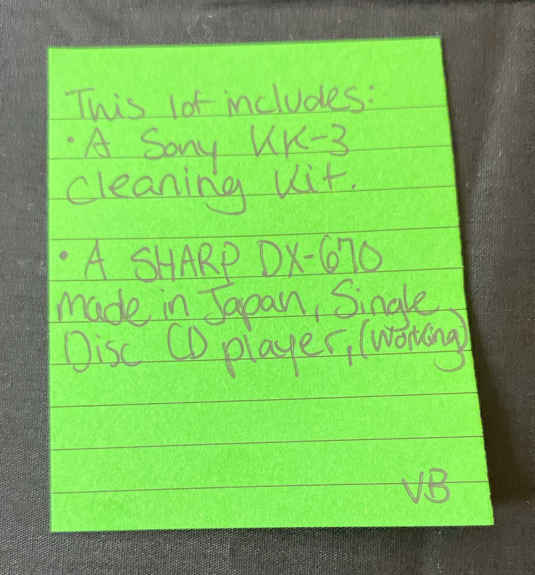 This lot includes:
• A Sony KK-3
Cleaning Kit.
• A SHARP DX-670
made in Japan, Single
Disc CD player, (Working)
VB